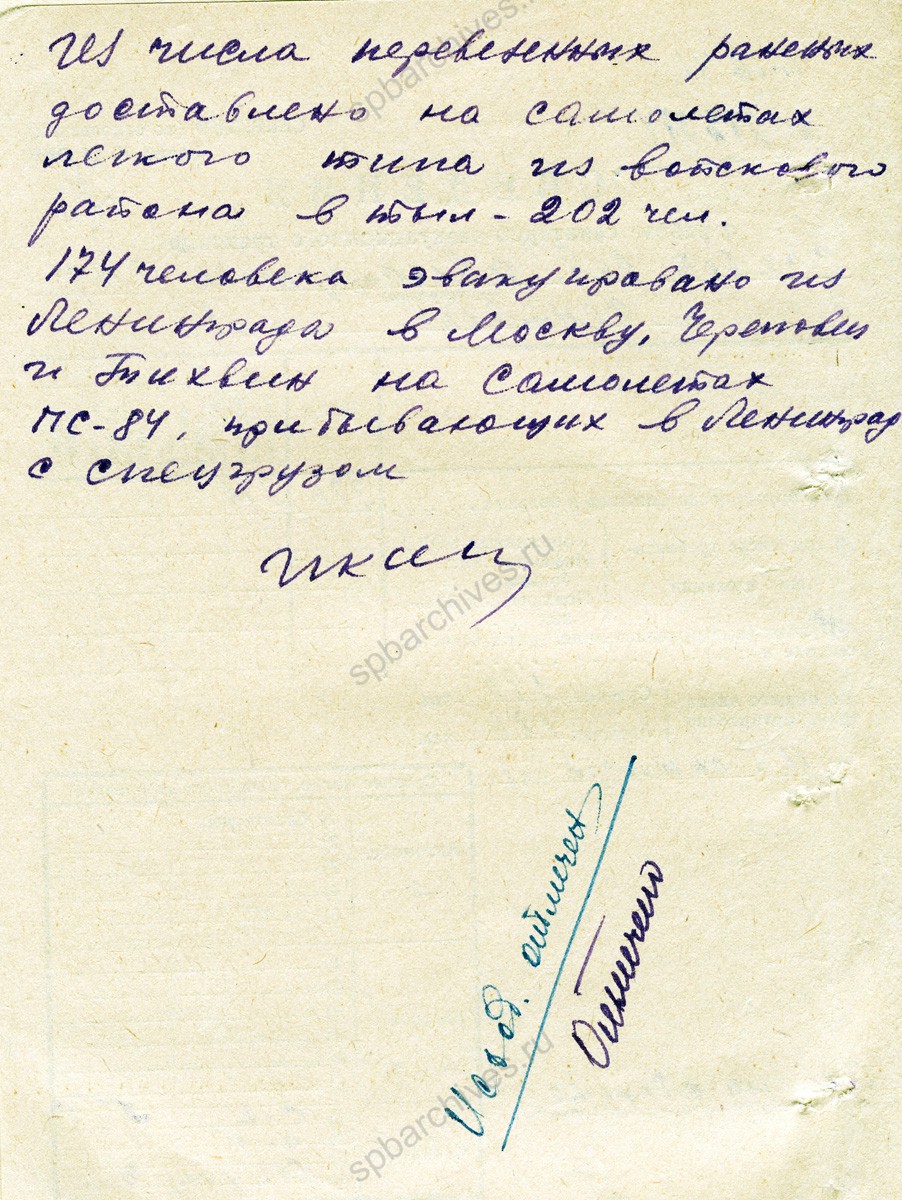 Из числа перевезенных раненых
доставлено на самолетах
легкого типа из войскового
района в тыл - 202 чел.
174 человека эвакуировано из
Ленинграда в Москву, Череповец
и Тихвин на самолетах
ПС-84, прибывающих в Ленинград
с спецгрузом
отмечен
Отмечено
spbarchives.ru
spbarchives.ru
spbarchives.ru